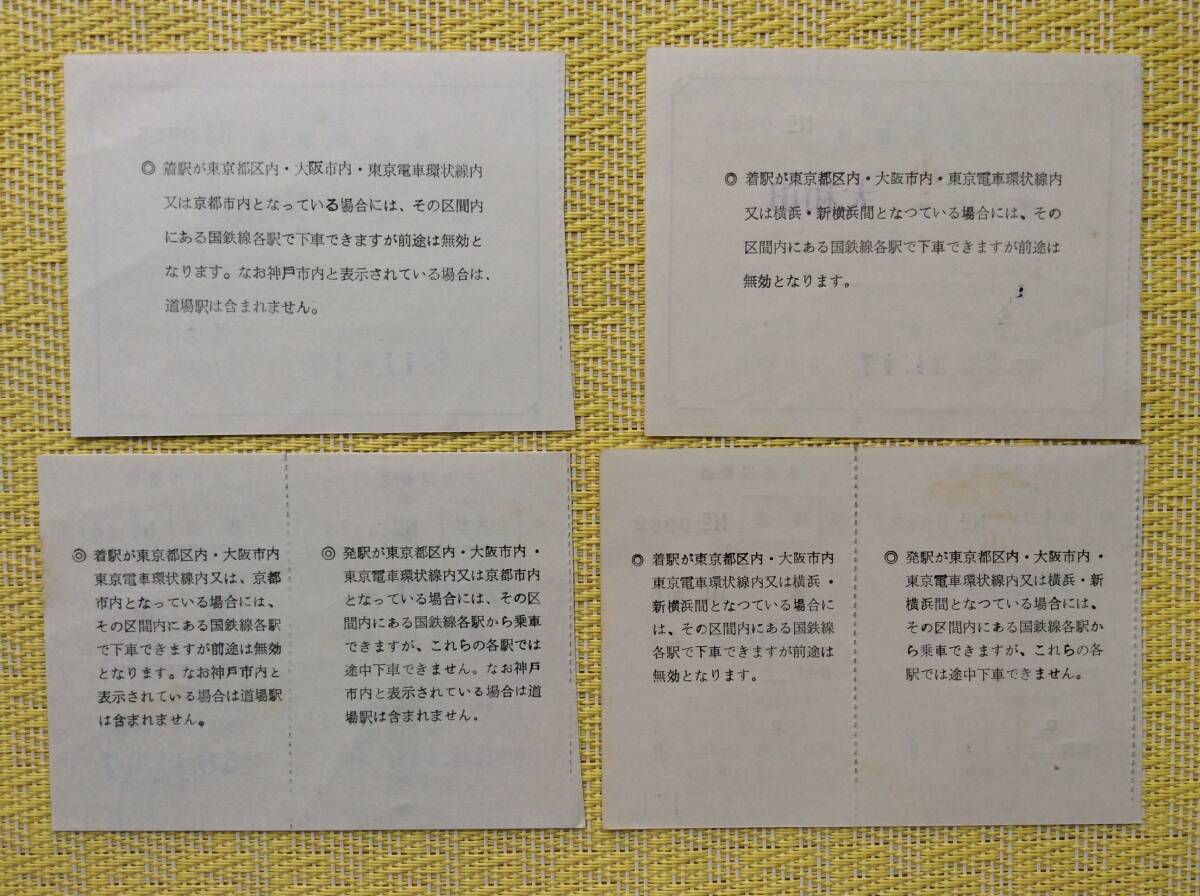 ◎ 着駅が東京都区内・大阪市内・東京電車環状線内
又は京都市内となっている場合には、その区間内
にある国鉄線各駅で下車できますが前途は無効と
なります。なお神戸市内と表示されている場合は、
道場駅は含まれません。
◎ 着駅が東京都区内・大阪市内・東京電車環状線内
又は横浜・新横浜間となつている場合には、その
区間内にある国鉄線各駅で下車できますが前途は
無効となります。
◎ 着駅が東京都区内・大阪市内・
東京電車環状線内又は、京都
市内となっている場合には、
その区間内にある国鉄線各駅
で下車できますが前途は無効
となります。なお神戸市内と
表示されている場合は道場駅
は含まれません。
◎ 発駅が東京都区内・大阪市内・
東京電車環状線内又は京都市内
となっている場合は、その区
間内にある国鉄線各駅から乗車
できますが、これらの各駅では
途中下車できません。なお神戸
市内と表示されている場合は道
場駅は含まれません。
◎ 着駅が東京都区内・大阪市内
東京電車環状線内又は横浜・
新横浜間となつている場合に
は、その区間内にある国鉄線
各駅で下車できますが前途は
無効となります。
◎ 発駅が東京都区内・大阪市内・
東京電車環状線内又は横浜・新
横浜間となつている場合には、
その区間内にある国鉄線各駅か
ら乗車できますが、これらの各
駅では途中下車できません。